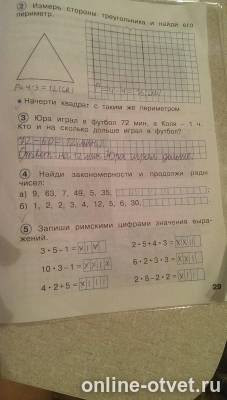 2 Измерь стороны треугольника и найди его
периметр.
P=4·3=12(см)
• Начерти квадрат с таким же периметром
3 Юра играл в футбол 72 мин, а Коля – 1 ч.
Кто и на сколько дольше играл в футбол?
72-60=12(мин)
Ответ: на 12 мин Юра играл дольше.
4 Найди закономерности и продолжи ряды
чисел:
а) 9, 63, 7, 49, 5, 35,
б) 1, 2, 2, 3, 4, 12, 5, 6, 30,
5 Запиши римскими цифрами значения выра-
жений.
3·5–1= XIV 2·5+4·3= XXII
10·3–1= XXIX 6·2+3·3= XXI
4·2+5= XIII 2·5–2·2=
29
online-otvet.ru